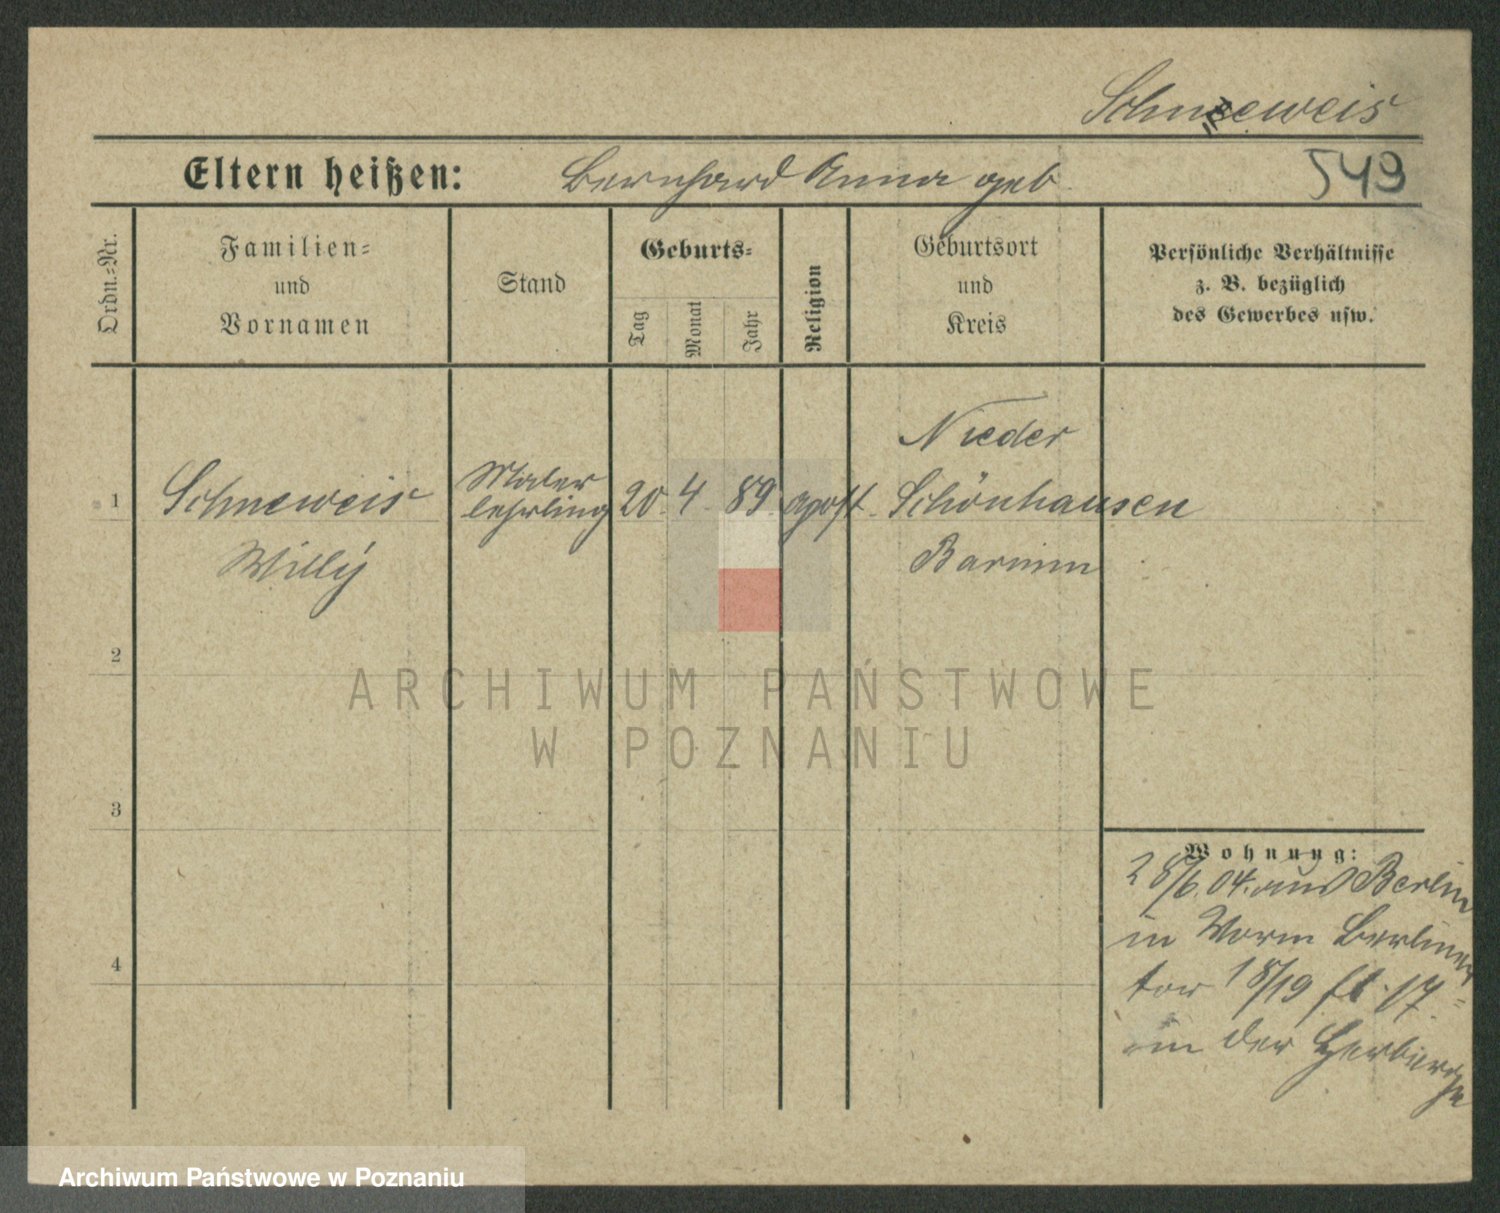 Schneeweis
Eltern heißen: Bernhard Anna geb
549
Ordn.=Nr.
Familien=
und
Vornamen
Stand
Geburts=
Tag
Monat
Jahr
Religion
Geburtsort
und
Kreis
Persönliche Verhältnisse
z. B. bezüglich
des Gewerbes usw.
1
Schneweis
Willÿ
Maler
lehrling
20. 4. 89.
apost.
Nieder
Schönhausen
Barnim
2
3
4
Wohnung:
28/6. 04. aus Berlin
in Berliner
tor 18/19 17
in der Herberge
ARCHIWUM PAŃSTWOWE
W POZNANIU
Archiwum Państwowe w Poznaniu